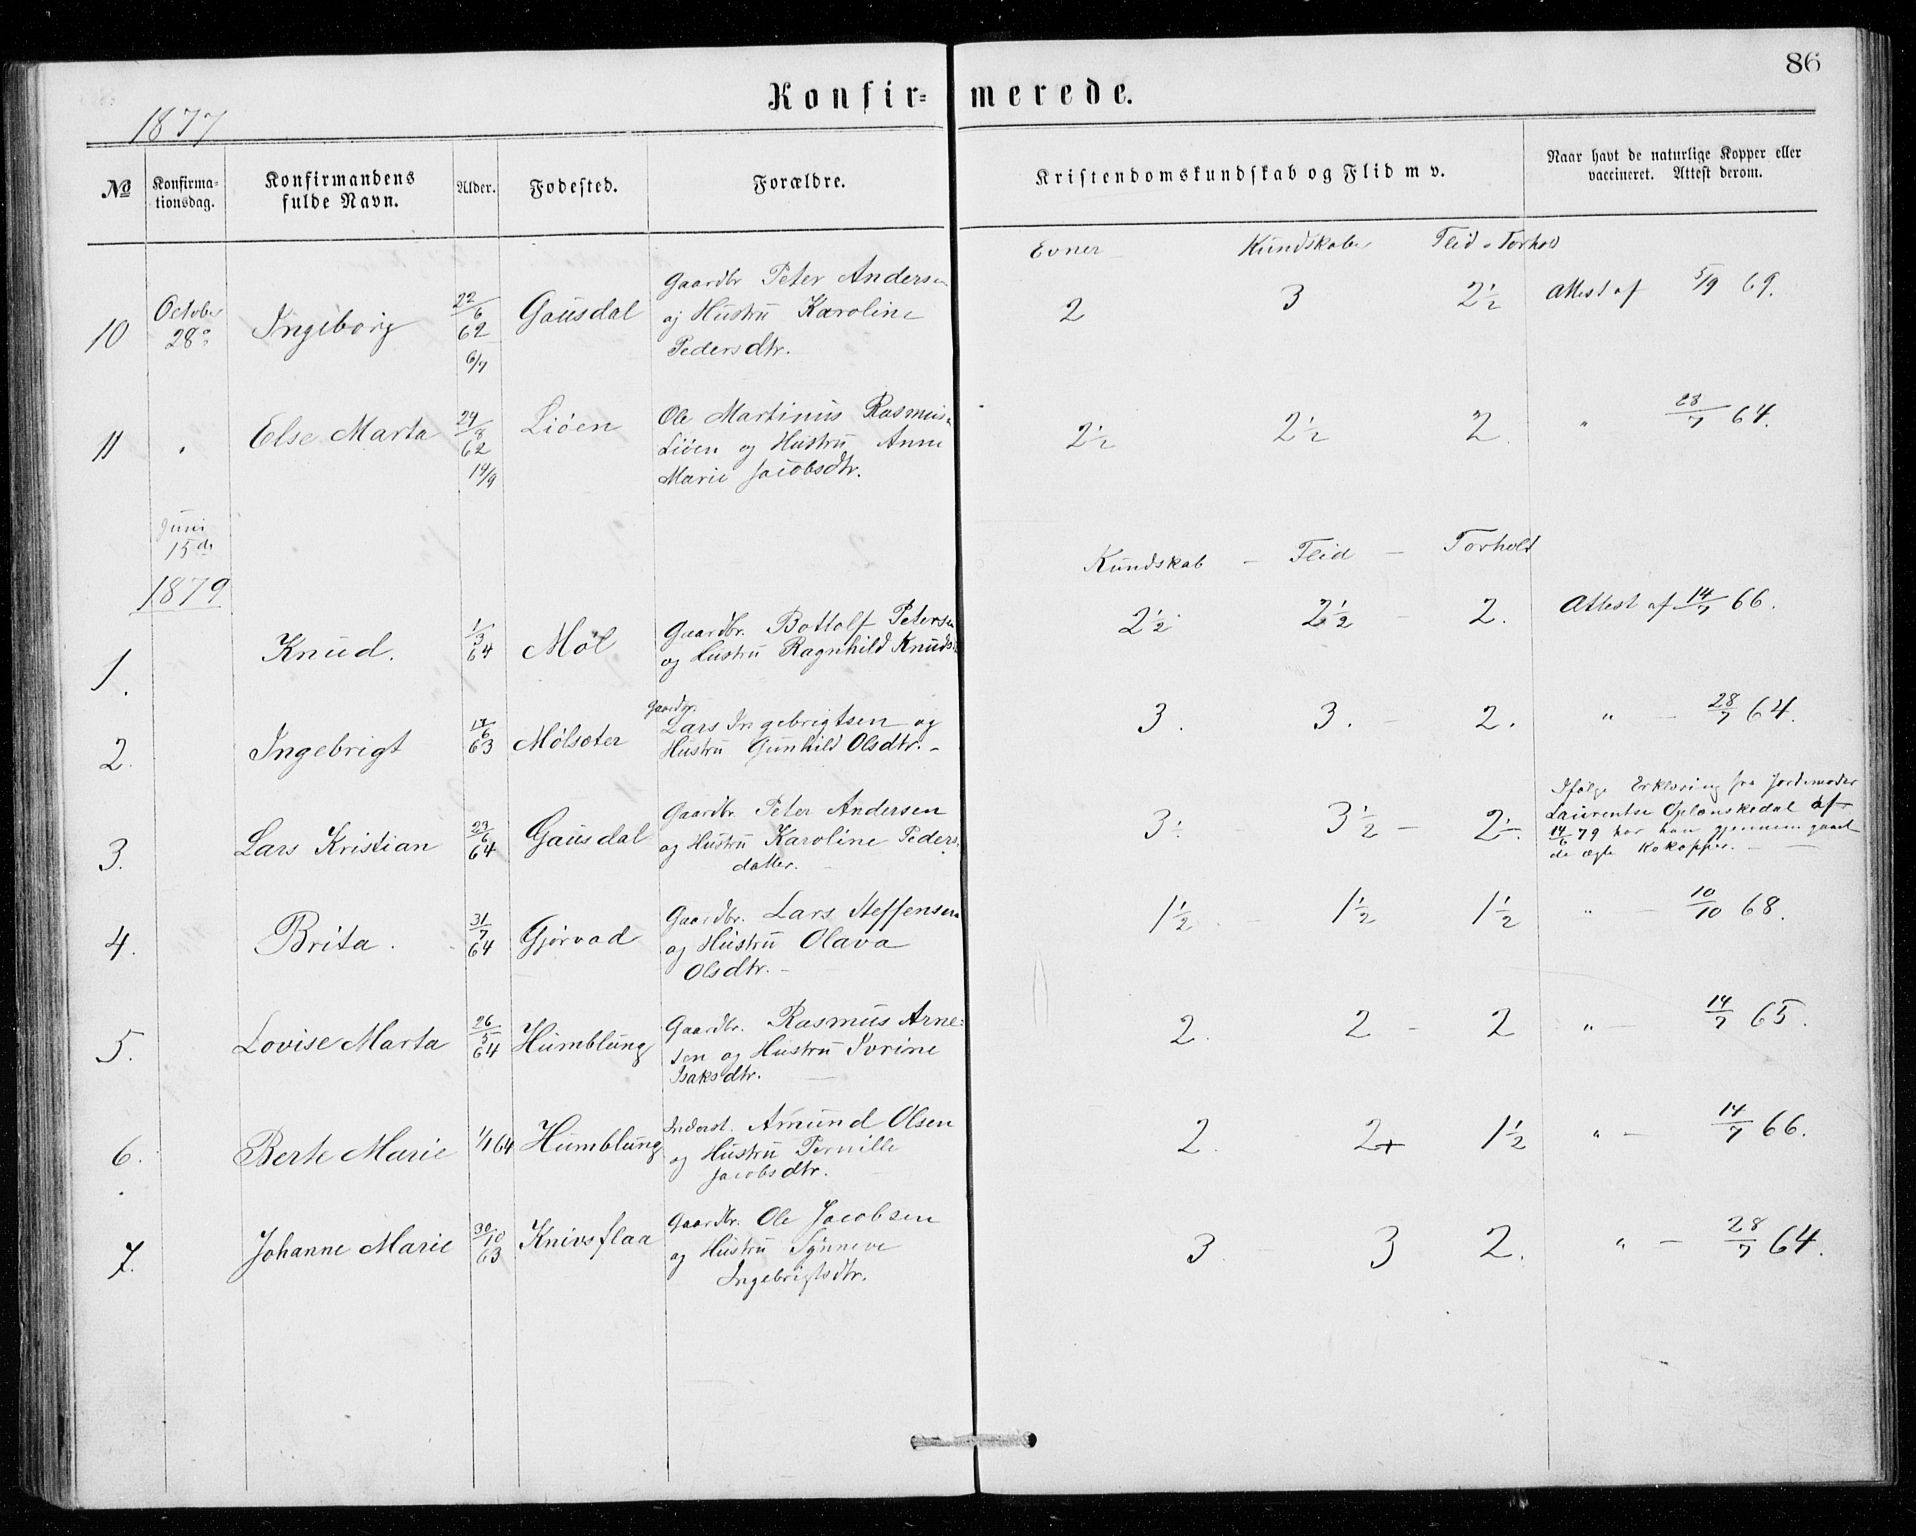 86
Konfir= merede.
1877
No
Konfirma-
tionsdag.
Konfirmandens
fulde Navn.
Alder.
Fødested.
Forældre.
Kristendomskundskab og Flid m v.
Naar havt de naturlige Kopper eller
vaccineret. Attest derom.
Evner Kundskaber Flid o Forhold
10 October 28de Ingeborg 22/6 62 6/7 Gausdal Gaardbr Peter Andersen
og Hustru Karoline
Pedersdtr.
2 3 2½ Attest af 5/9 69.
11 " Else Marta 24/8 62 14/9 Liøen Ole Martinus Rasmus.
Liøen og Hustru Anne
Marie Jacobsdtr.
2½ 2½ 2. " 28/7 64.
Juni
15de
1879
Kundskab – Flid – Forhold
1. Knud. 1/3 64 Møl Gaardbr. Bottolf Petersen
og Hustru Ragnhild Knuds
2½ 2½ – 2. Attest af 14/7 66.
2. Ingebrigt 17/6 63 Mølsæter Gaardbr.
Lars Ingebrigtsen og
Hustru Gunhild Olsdtr. –
3. 3. – 2. " – 28/7 64.
3. Lars Kristian 23/6 64 Gausdal Gaardbr. Peter Andersen
og Hustru Karoline Peders.
datter. –
3 3½ – 2 Ifølge Erklæring fra Jordemoder
Laurentse Oplanskedal af
14/6 79 har han gjennemgaaet
de ægte Kokopper. –
4. Brita. 31/7 64 Gjørvad Gaardbr. Lars Steffensen
og Hustru Olava
Olsdtr. –
1½ 1½ 1½ " – 10/10 68.
5. Lovise Marta 26/5 64 Humblung Gaardbr. Rasmus Arne=
sen og Hustru Ivrine
Isaksdtr. –
2. 2 – 2 " – 14/7 65.
6. Berte Marie 1/1 64 Humblung Inderst. Amund Olsen
og Hustru Pernille
Jacobsdtr.
2. 2+ 1½ " – 14/7 66.
7. Johanne Marie 30/10 63 Knivsflaa Gaardbr. Ole Jacobsen
og Hustru Synneve
Ingebrigtsdtr.
3. 3 2. " – 28/7 64.